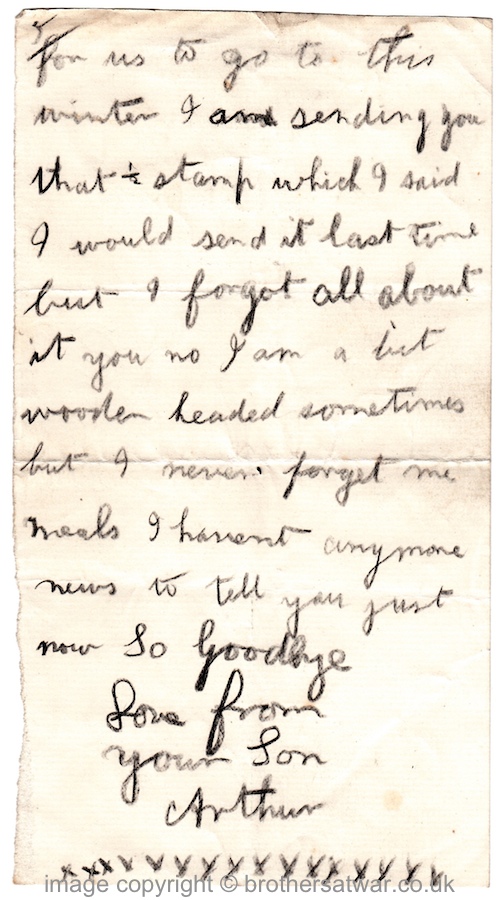 for us to go to this
winter I am sending you
that ½ stamp which I said
I would send it last time
but I forgot all about
it you no I am a bit
wooden headed sometimes
but I never forget me
meals I havent anymore
news to tell you just
now So Goodbye
Love from
your Son
Arthur
xxxxxxxxxxxxxxxxxx
image copyright © brothersatwar.co.uk